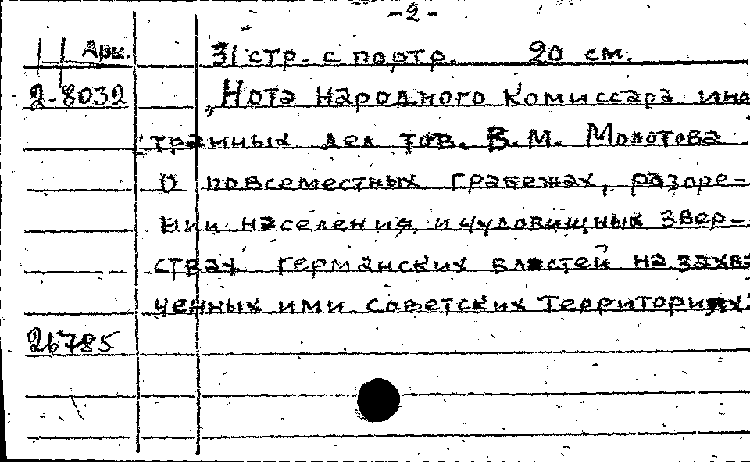 -2-
Арх. 31 стр. с портр. 20 см.
2-8032 „Нота Народного Комиссара ино
странных дел тов. В.М. Молотова
О повсеместных грабежах, разоре-
нии населения и чудовищных звер-
ствах германских властей на захва
ченных ими советских территориях.
26785